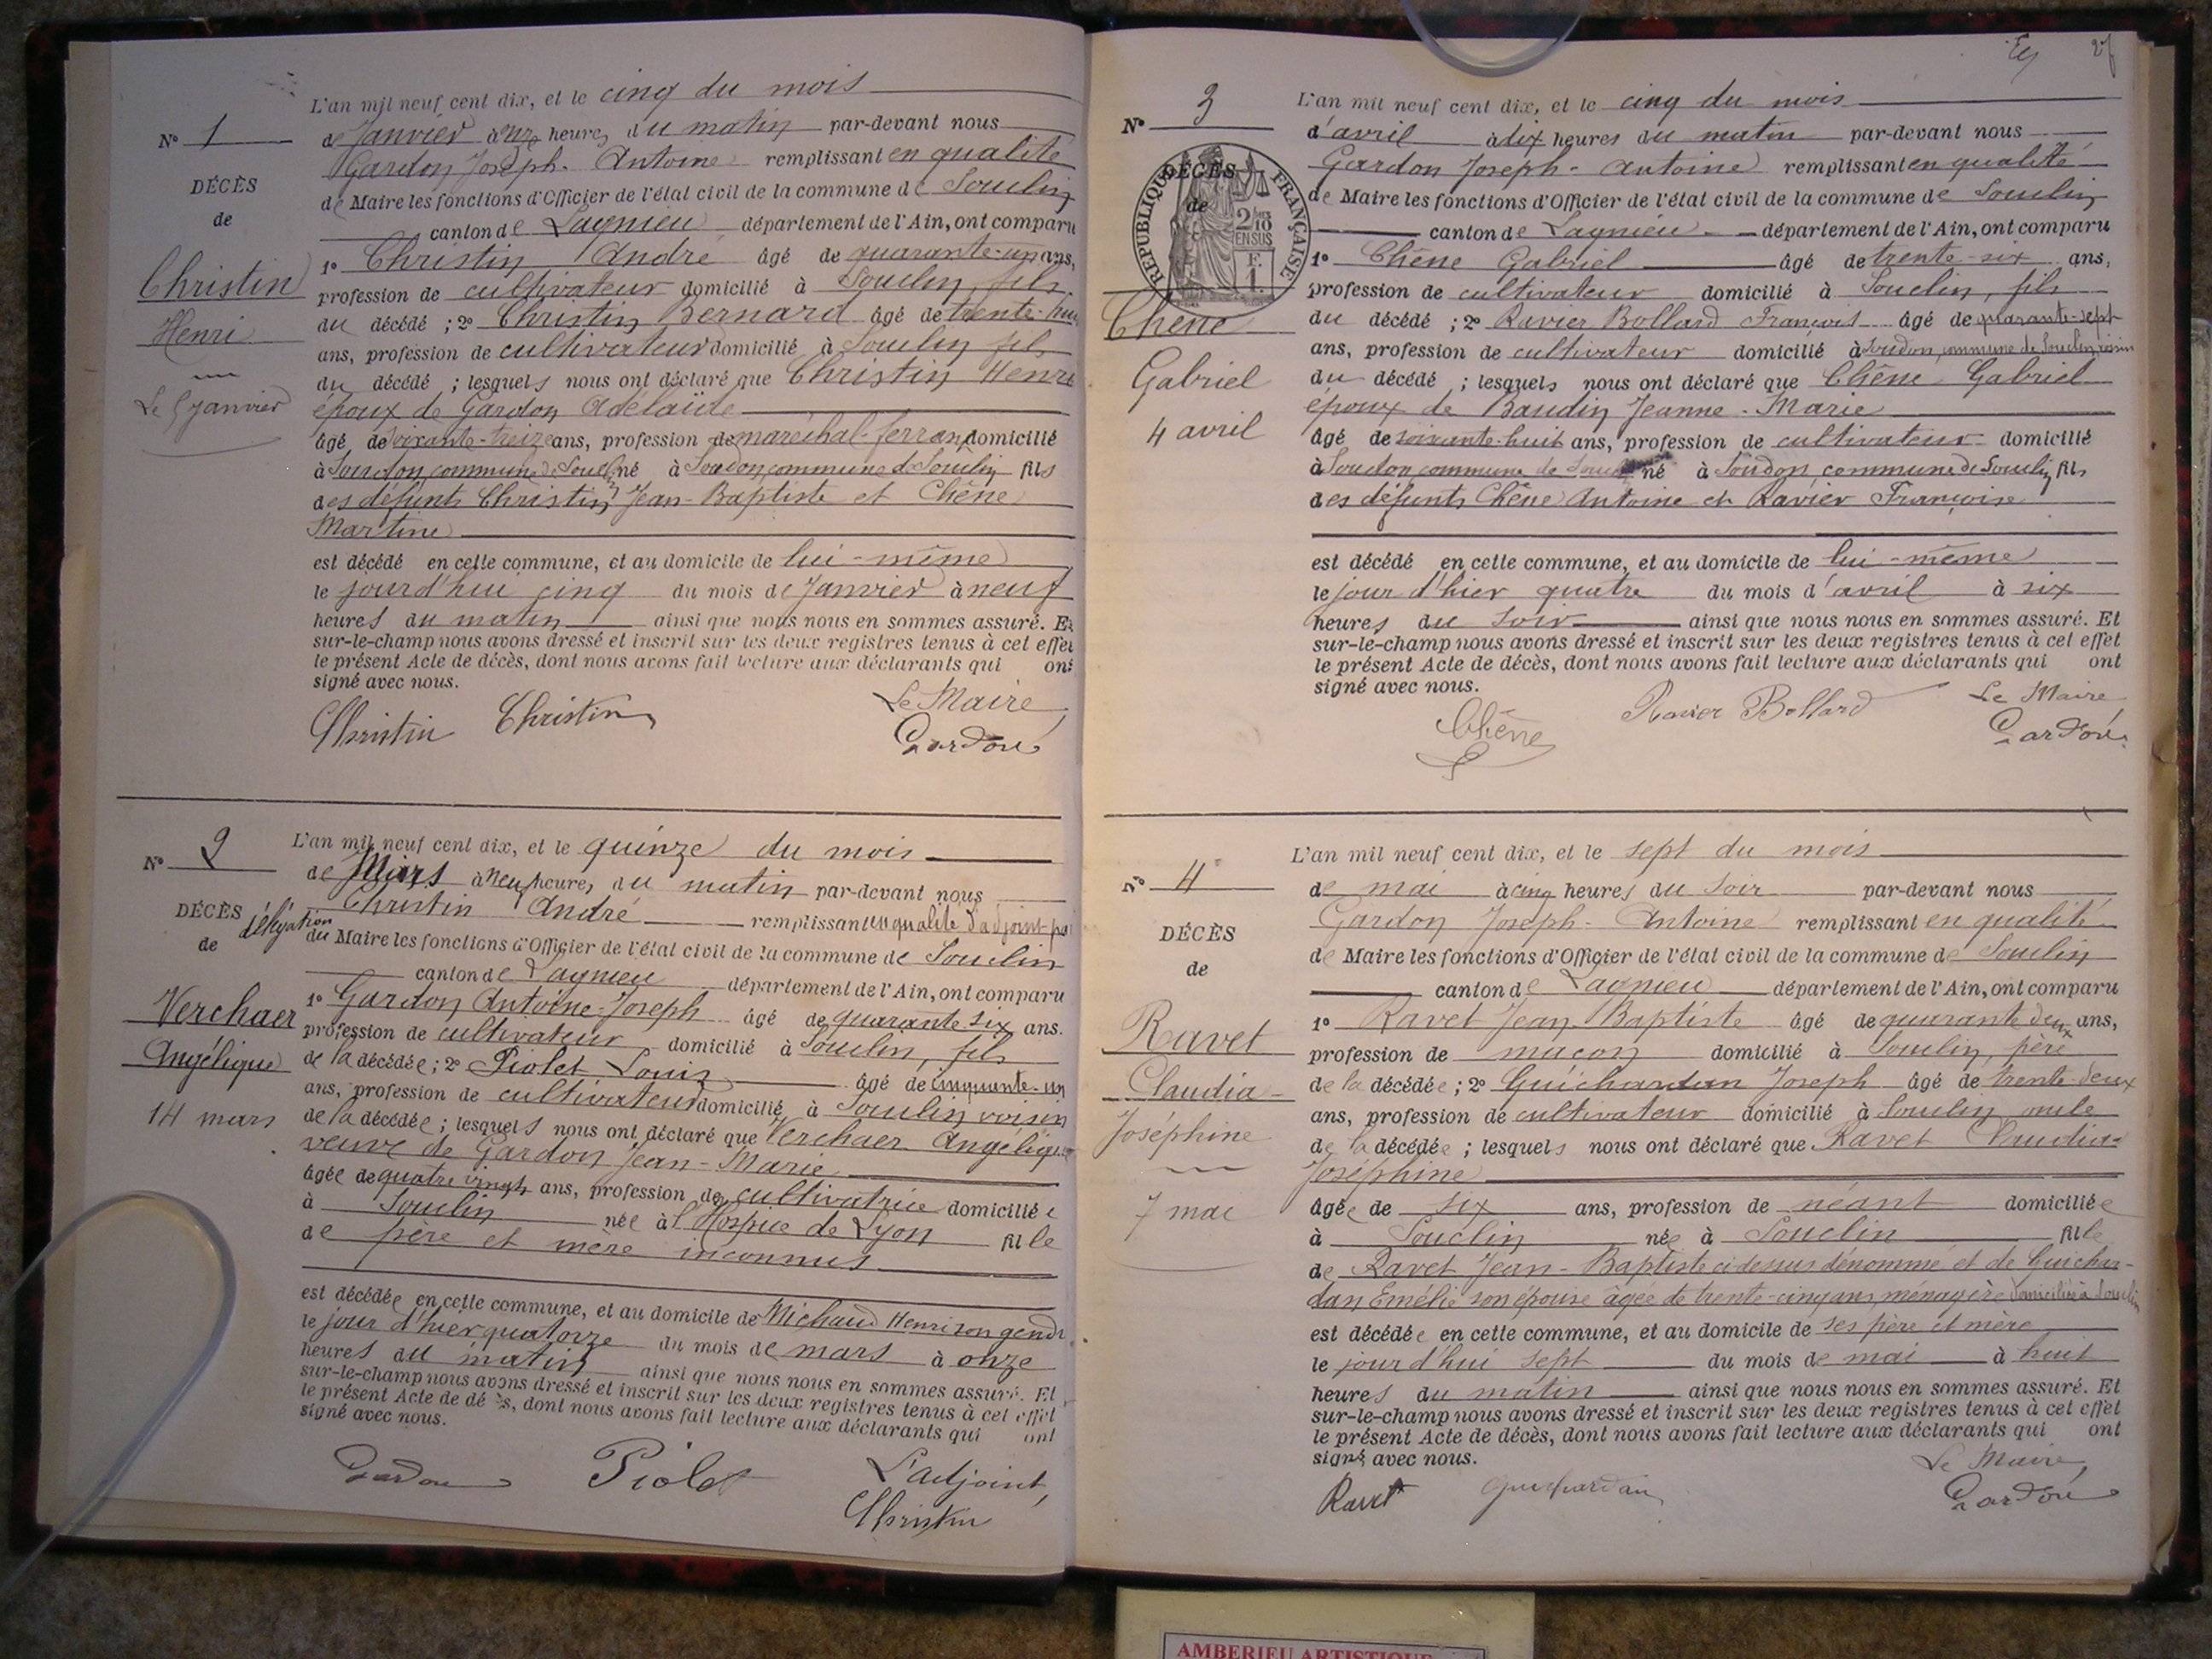 L'an mil neuf cent dix, et le cinq du mois
N° 1 de Janvier à onze heures du matin par-devant nous
Gardon Joseph-Antoine remplissant en qualité
DÉCÈS
de Maire les fonctions d'Officier de l'état civil de la commune de Souclin
de
canton de Lagnieu département de l'Ain, ont comparu
Christin
1° Christin André âgé de quarante-un ans,
profession de cultivateur domicilié à Souclin, fils
Henri
du décédé ; 2° Christin Bernard âgé de trente-huit
ans, profession de cultivateur domicilié à Souclin fils
du décédé ; lesquels nous ont déclaré que Christin Henri
Le 5 janvier
époux de Gardon Adélaïde
âgé de soixante-treize ans, profession de maréchal-ferrant domicilié
à Soudon, commune de Souclin né à Soudon, commune de Souclin fils
des défunts Christin Jean-Baptiste et Chêne
Martine
est décédé en cette commune, et au domicile de lui-même
le jourd'hui cinq du mois de Janvier à neuf
heures du matin ainsi que nous nous en sommes assuré. Et
sur-le-champ nous avons dressé et inscrit sur les deux registres tenus à cet effet
le présent Acte de décès, dont nous avons fait lecture aux déclarants qui ont
signé avec nous.
Christin Christin Le Maire,
Gardon
L'an mil neuf cent dix, et le quinze du mois
N° 2 de Mars à neuf heures du matin par-devant nous
Christin André remplissant en qualité d'adjoint par
DÉCÈS
délégation du Maire les fonctions d'Officier de l'état civil de la commune de Souclin
de
canton de Lagnieu département de l'Ain, ont comparu
Verchaer
1° Gardon Antoine-Joseph âgé de quarante six ans.
profession de cultivateur domicilié à Souclin, fils
Angélique
de la décédée ; 2° Piolet Louis âgé de cinquante-un
ans, profession de cultivateur domicilié à Souclin voisin
14 mars
de la décédée ; lesquels nous ont déclaré que Verchaer Angélique
veuve de Gardon Jean-Marie
âgée de quatre vingts ans, profession de cultivatrice domiciliée
à Souclin née à l'Hospice de Lyon fille
de père et mère inconnus
est décédée en cette commune, et au domicile de Michaud Henri son gendre
le jour d'hier quatorze du mois de mars à onze
heures du matin ainsi que nous nous en sommes assuré. Et
sur-le-champ nous avons dressé et inscrit sur les deux registres tenus à cet effet
le présent Acte de décès, dont nous avons fait lecture aux déclarants qui ont
signé avec nous.
Gardon Piolet L'adjoint,
Christin
L'an mil neuf cent dix, et le cinq du mois
N° 3 d'avril à dix heures du matin par-devant nous
Gardon Joseph-Antoine remplissant en qualité
DÉCÈS
de Maire les fonctions d'Officier de l'état civil de la commune de Souclin
de
RÉPUBLIQUE FRANÇAISE
2/10 EN SUS
F. 1.
canton de Lagnieu département de l'Ain, ont comparu
1° Chêne Gabriel âgé de trente-six ans,
profession de cultivateur domicilié à Souclin, fils
Chêne
du décédé ; 2° Ravier Bollard François âgé de quarante-sept
ans, profession de cultivateur domicilié à Soudon, commune de Souclin, voisin
Gabriel
du décédé ; lesquels nous ont déclaré que Chêne Gabriel
époux de Baudin Jeanne-Marie
4 avril
âgé de soixante-huit ans, profession de cultivateur domicilié
à Soudon commune de Souclin né à Soudon, commune de Souclin fils
des défunts Chêne Antoine et Ravier Françoise
est décédé en cette commune, et au domicile de lui-même
le jour d'hier quatre du mois d'avril à six
heures du soir ainsi que nous nous en sommes assuré. Et
sur-le-champ nous avons dressé et inscrit sur les deux registres tenus à cet effet
le présent Acte de décès, dont nous avons fait lecture aux déclarants qui ont
signé avec nous.
Chêne Ravier Bollard Le Maire,
Gardon
L'an mil neuf cent dix, et le sept du mois
N° 4 de mai à cinq heures du soir par-devant nous
Gardon Joseph-Antoine remplissant en qualité
DÉCÈS
de Maire les fonctions d'Officier de l'état civil de la commune de Souclin
de
canton de Lagnieu département de l'Ain, ont comparu
Ravet
1° Ravet Jean-Baptiste âgé de quarante deux ans,
profession de maçon domicilié à Souclin, père
Claudia-
de la décédée ; 2° Guichardan Joseph âgé de trente-deux
ans, profession de cultivateur domicilié à Souclin oncle
Joséphine
de la décédée ; lesquels nous ont déclaré que Ravet Claudia-
Joséphine
7 mai
âgée de six ans, profession de néant domiciliée
à Souclin née à Souclin fille
de Ravet Jean-Baptiste ci-dessus dénommé et de Guichar-
dan Emélie son épouse âgée de trente-cinq ans, ménagère domiciliée à Souclin
est décédée en cette commune, et au domicile de ses père et mère
le jour d'hui sept du mois de mai à huit
heures du matin ainsi que nous nous en sommes assuré. Et
sur-le-champ nous avons dressé et inscrit sur les deux registres tenus à cet effet
le présent Acte de décès, dont nous avons fait lecture aux déclarants qui ont
signé avec nous.
Ravet Guichardan Le Maire,
Gardon
AMBERIEU ARTISTIQUE